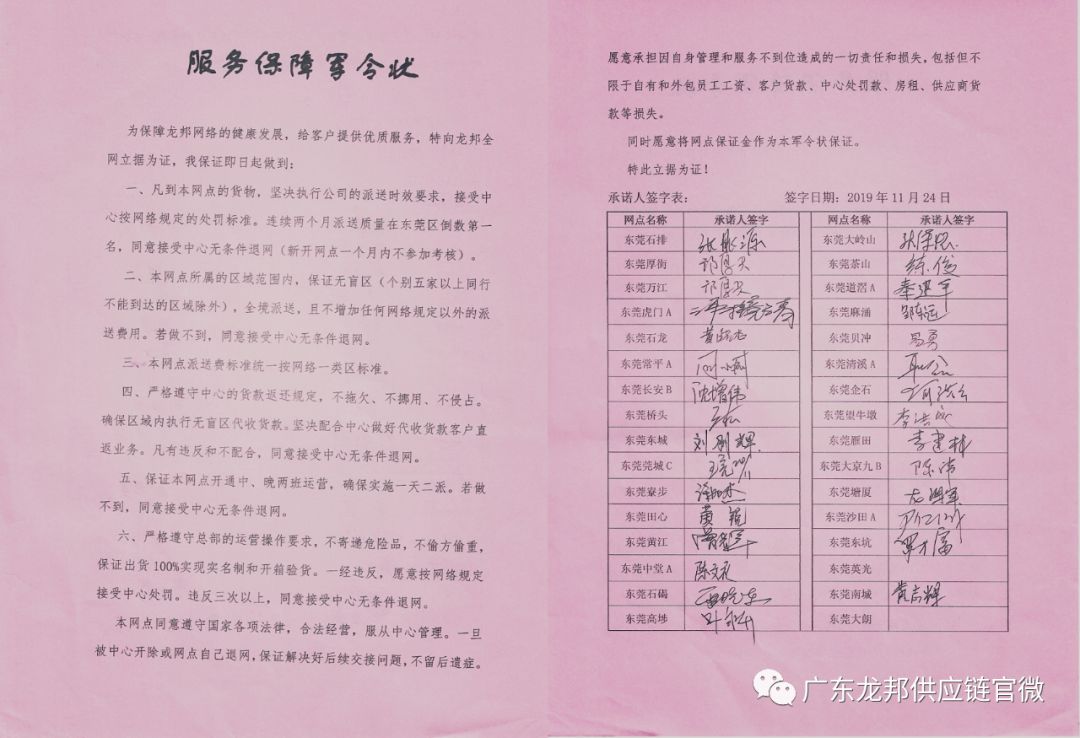 服务保障军令状
为保障龙邦网络的健康发展，给客户提供优质服务，特向龙邦全
网立据为证，我保证即日起做到：
一、凡到本网点的货物，坚决执行公司的派送时效要求，接受中
心按网络规定的处罚标准。连续两个月派送质量在东莞区倒数第一
名，同意接受中心无条件退网（新开网点一个月内不参加考核）。
二、本网点所属的区域范围内，保证无盲区（个别五家以上同行
不能到达的区域除外），全境派送，且不增加任何网络规定以外的派
送费用。若做不到，同意接受中心无条件退网。
三、本网点派送费标准统一按网络一类区标准。
四、严格遵守中心的货款返还规定，不拖欠、不挪用、不侵占。
确保区域内执行无盲区代收货款。坚决配合中心做好代收货款客户直
返业务。凡有违反和不配合，同意接受中心无条件退网。
五、保证本网点开通中、晚两班运营，确保实施一天二派。若做
不到，同意接受中心无条件退网。
六、严格遵守总部的运营操作要求，不寄递危险品，不偷方偷重，
保证出货100%实现实名制和开箱验货。一经违反，愿意按网络规定
接受中心处罚。违反三次以上，同意接受中心无条件退网。
本网点同意遵守国家各项法律，合法经营，服从中心管理。一旦
被中心开除或网点自己退网，保证解决好后续交接问题，不留后遗症。
愿意承担因自身管理和服务不到位造成的一切责任和损失，包括但不
限于自有和外包员工工资、客户货款、中心处罚款、房租、供应商货
款等损失。
同时愿意将网点保证金作为本军令状保证。
特此立据为证！
承诺人签字表： 签字日期：2019年11月24日
网点名称 承诺人签字 网点名称 承诺人签字
东莞石排 东莞大岭山
东莞厚街 东莞茶山 练俊
东莞万江 东莞道滘A 秦建军
东莞虎门A 东莞麻涌
东莞石龙 东莞贝冲 易勇
东莞常平A 东莞清溪A
东莞长安B 沈增伟 东莞企石
东莞桥头 东莞望牛墩
东莞东城 东莞雁田 李建林
东莞莞城C 东莞大京九B 陈伟
东莞寮步 东莞塘厦
东莞田心 东莞沙田A
东莞黄江 东莞东坑
东莞中堂A 陈文礼 东莞英光
东莞石碣 东莞南城 黄志辉
东莞高埗 东莞大朗
广东龙邦供应链官微